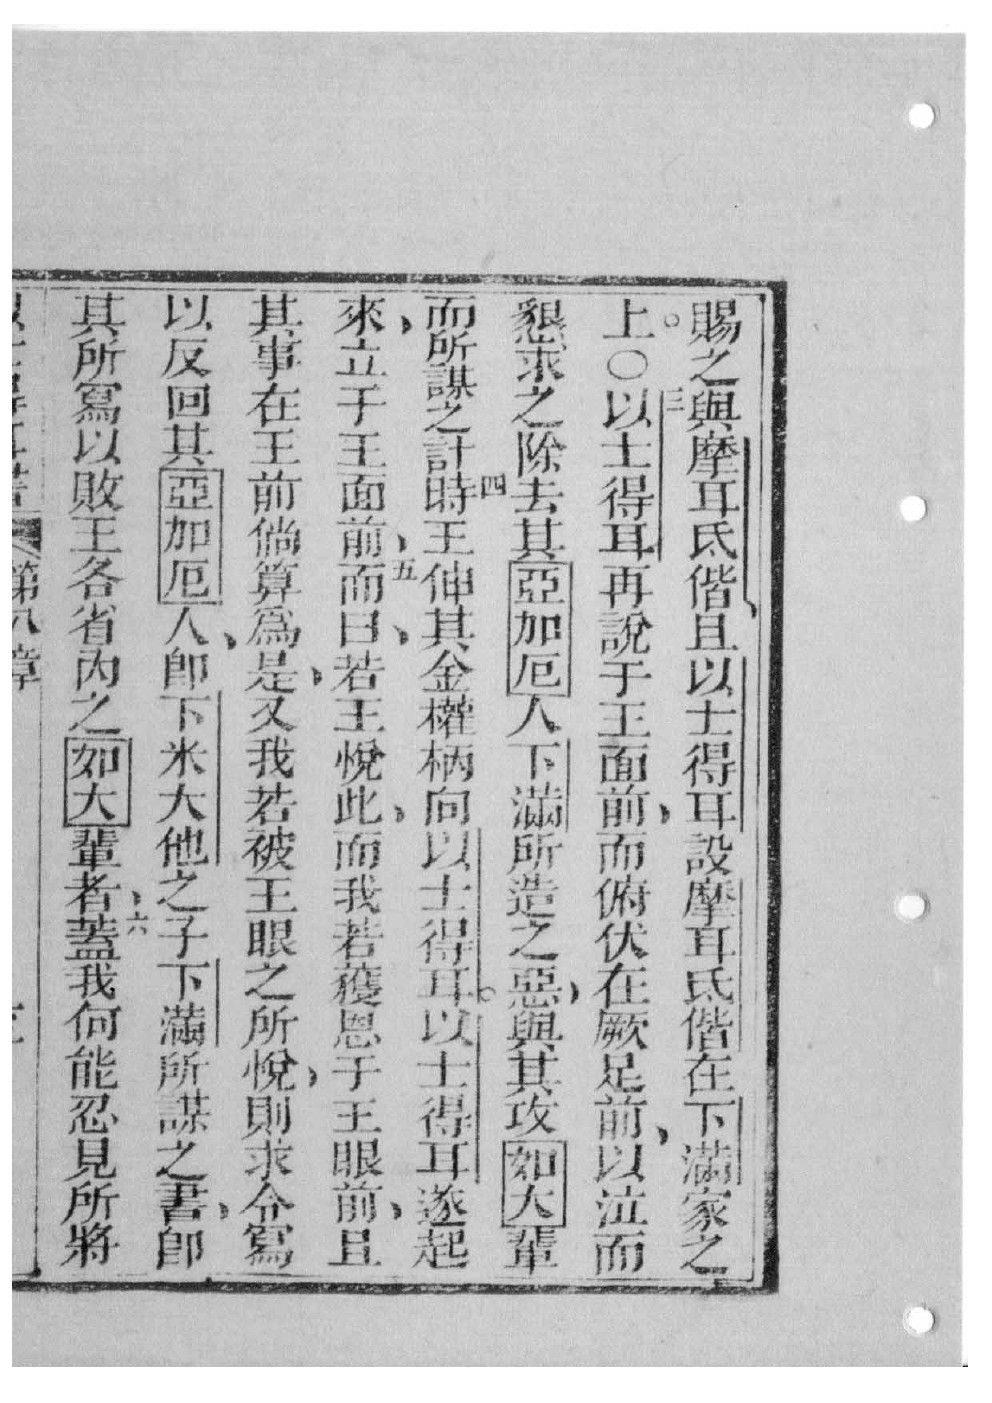 賜之與摩耳氐偕、且以士得耳設摩耳氐偕在下滿家之
上。〇三以士得耳再說于王面前、而俯伏在厥足前、以泣而
懇求之除去其亞加厄人下滿所造之惡、與其攻如大輩
而所謀之計、四時王伸其金權柄向以士得耳。以士得耳遂起
來、立于王面前、五而曰、若王悅此、而我若獲恩于王眼前、且
其事在王前倘算爲是、又我若被王眼之所悅、則求令寫
以反回其亞加厄人、卽下米大他之子下滿所謀之書、卽
其所寫以敗王各省內之如大輩者、六蓋我何能忍見所將
以士得耳書 第八章